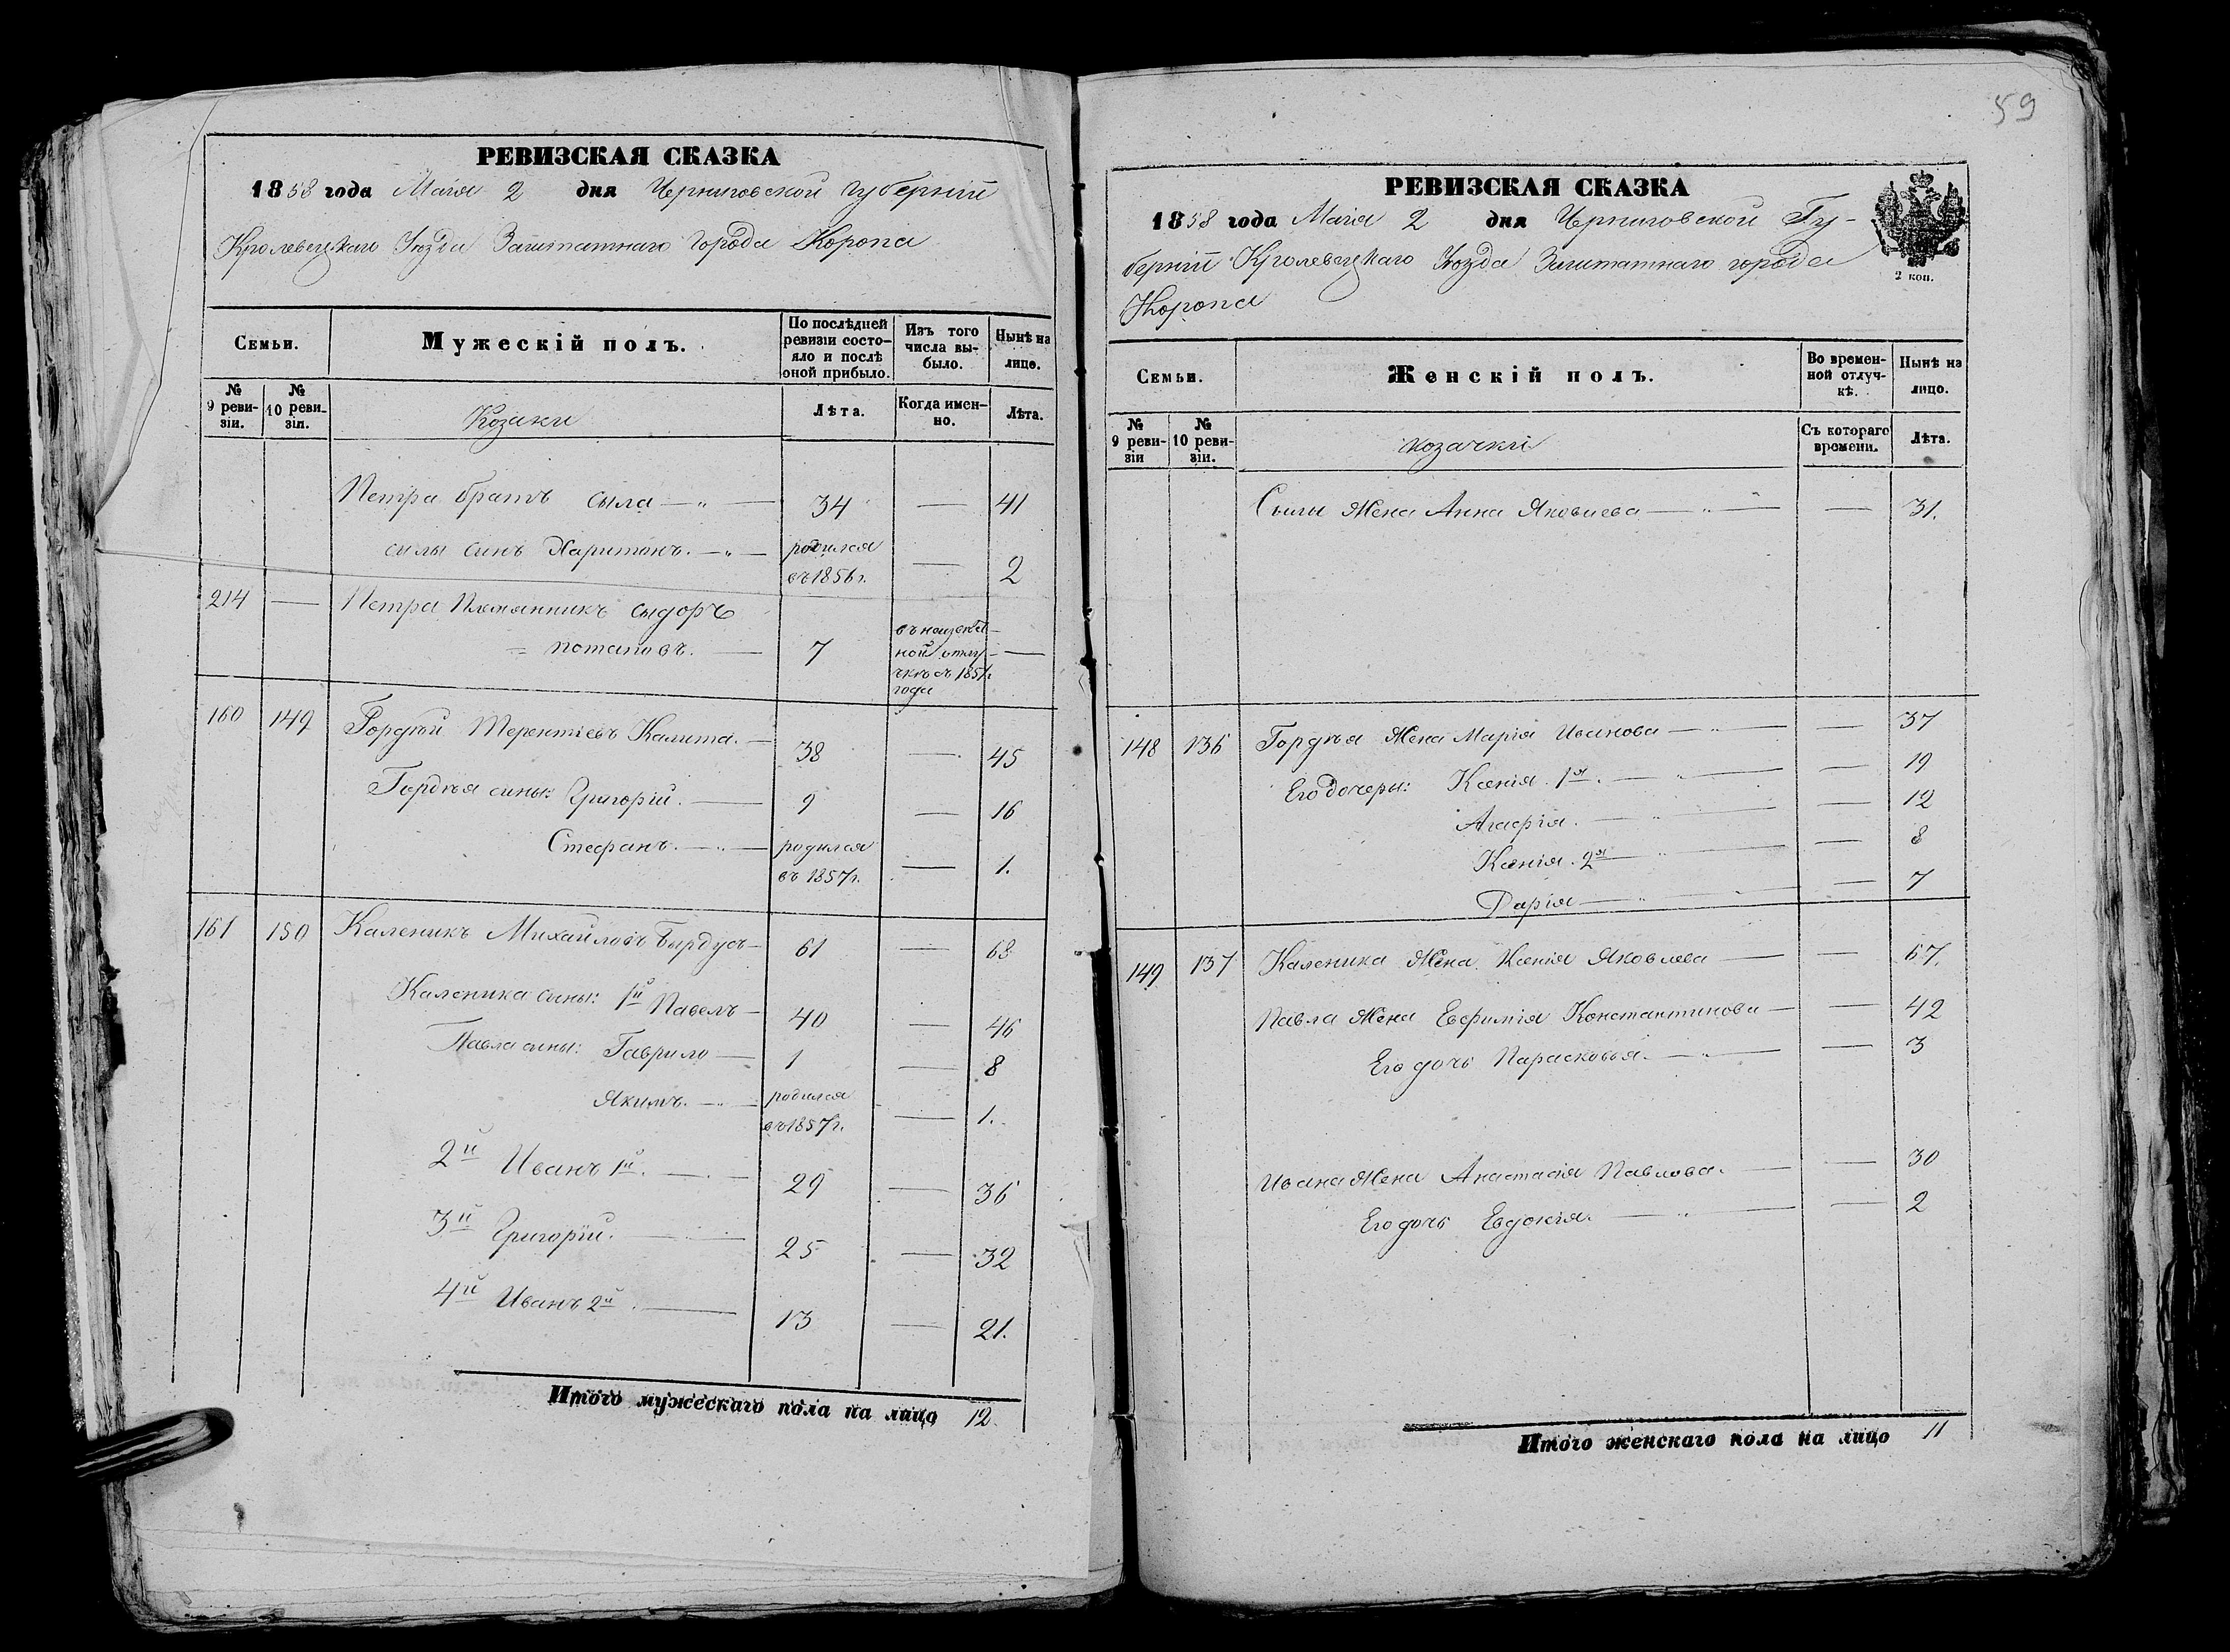 59
РЕВИЗСКАЯ СКАЗКА
1858 года Маія 2 дня Черниговской губерніи
Кролевецкаго Уѣзда Заштатнаго города Коропа
Семьи. Мужескій полъ. По послѣдней ревизіи состояло и послѣ оной прибыло. Изъ того числа выбыло. Нынѣ на лице.
№ 9 ревизіи. № 10 ревизіи. Козаки Лѣта. Когда именно. Лѣта.
Петра братъ Сыла — „ — 34 — 41
силы синъ Харитонъ. — „ — родился въ 1856 г. — 2
214 — Петра Племянникъ Сыдоръ
= Потаповъ. — 7 въ неизвѣстной отлучкѣ съ 1851 года —
160 149 Гордѣй Терентіевъ Калита. — 38 — 45
Гордѣя сины: Григорій. — 9 — 16
Стефанъ. — „ — родился въ 1857 г. — 1.
161 150 Каленикъ Михайловъ Бырдусъ — 61 — 68
Каленика сины: 1й Павелъ — 40 — 46
Павла сины: Гаврило — 1 — 8
Якимъ. — „ — родился въ 1857 г. — 1.
2й Иванъ 1й. — 29 — 36
3й Григорій. — 25 — 32
4й Иванъ 2й. — 13 — 21.
Итого мужескаго пола на лицо 12.
РЕВИЗСКАЯ СКАЗКА
1858 года Маія 2 дня Черниговской Гу-
берніи Кролевецкаго Уѣзда Заштатнаго города
Коропа
2 коп.
Семьи. Женскій полъ. Во временной отлучкѣ. Нынѣ на лицо.
№ 9 ревизіи № 10 ревизіи. козачки Съ котораго времени. Лѣта.
Сылы Жена Анна Яковлева — „ — — 31.
148 136 Гордѣя Жена Марія Иванова — „ — — 37
Его дочери: Ксенія. 1я. — „ — — 19
Агафія. — „ — — 12
Ксенія. 2я — „ — — 8
Дарія — „ — — 7
149 137 Каленика Жена Ксенія Яковлева — — 67.
Павла Жена Евфимія Константинова — — 42
Его дочь Парасковья. — „ — — 3
Ивана Жена Анастасія Павлова. — — 30
Его дочь Евдокія. — „ — — 2
Итого женскаго пола на лицо 11